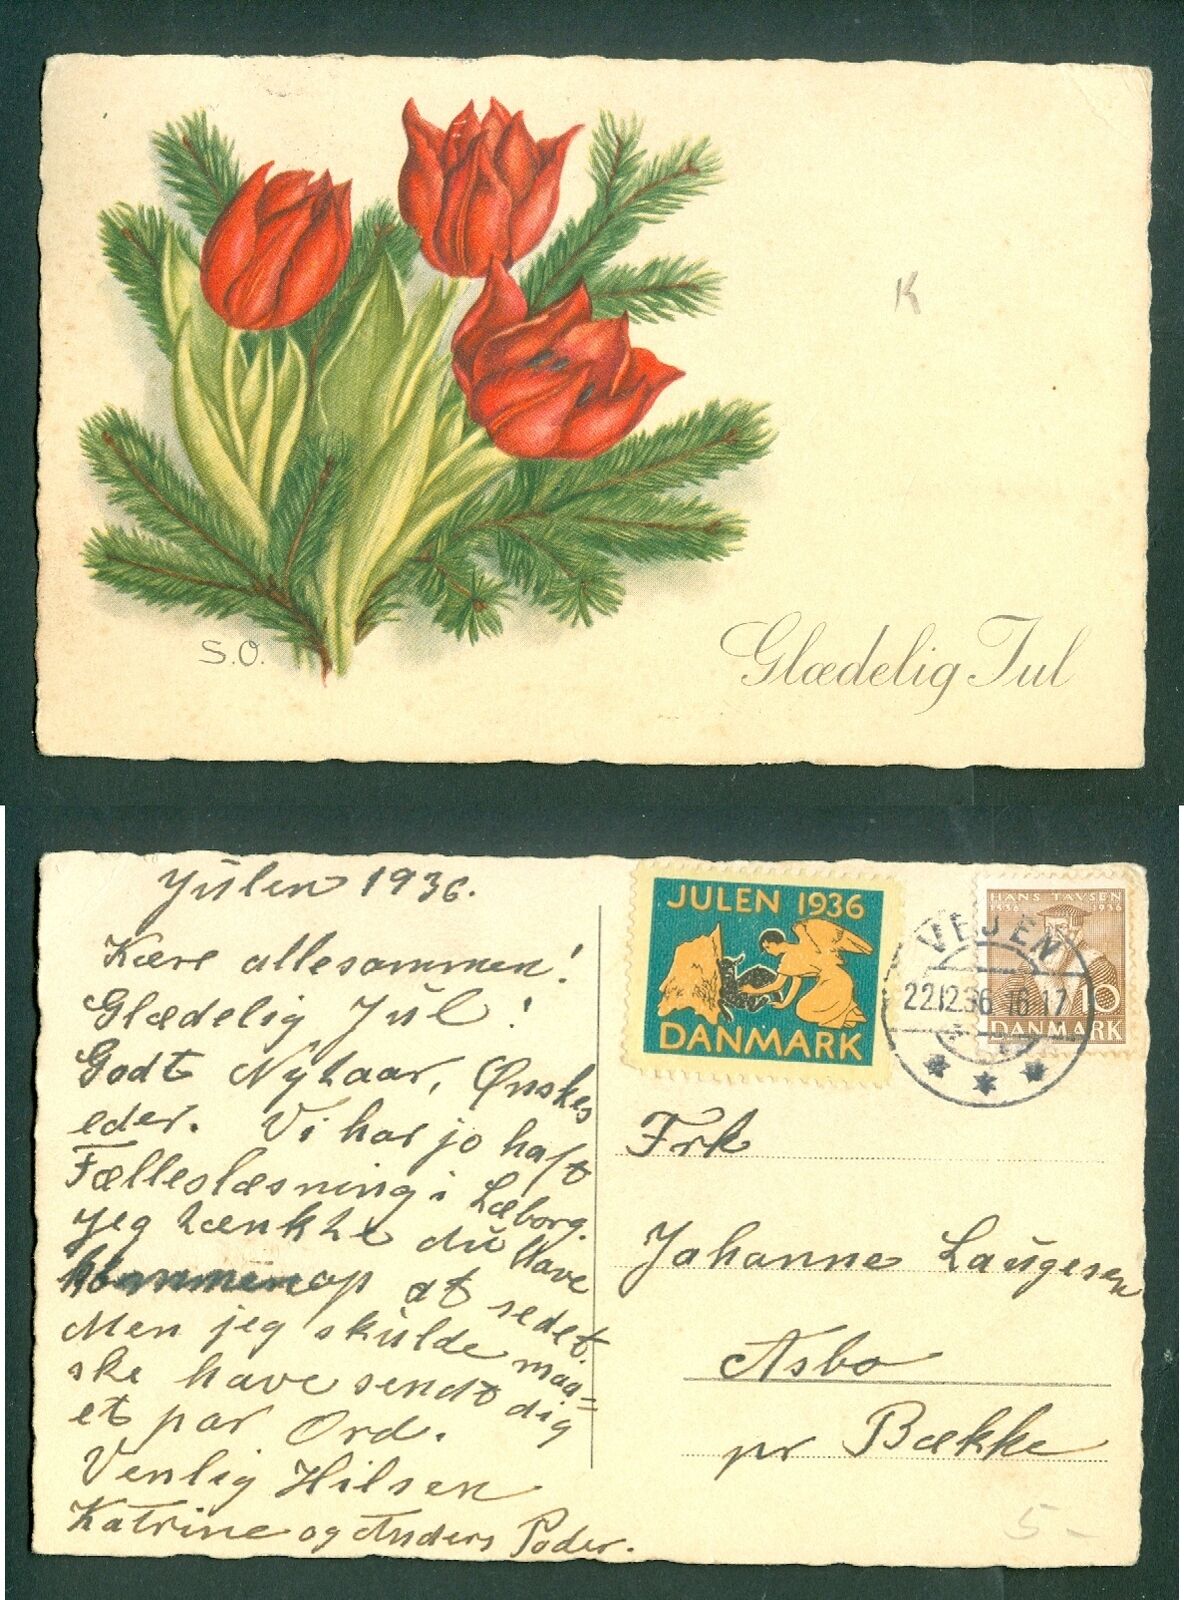 K
S.O.
Glædelig Jul
Julen 1936.
Kære allesammen!
Glædelig Jul!
Godt Nytaar, Ønskes
eder. Vi har jo haft
Fælleslæsning i Læborg.
Jeg tænkte du have
kommen op at sedet.
Men jeg skulde maa=
ske have sendt dig
et par Ord.
Venlig Hilsen
Katrine og Anders Poder.
JULEN 1936
DANMARK
HANS TAVSEN
1536 1936
10
DANMARK
VEJEN
22.12.36 16-17
Frk
Johanne Laugesen
Asbo
pr Bække
5-